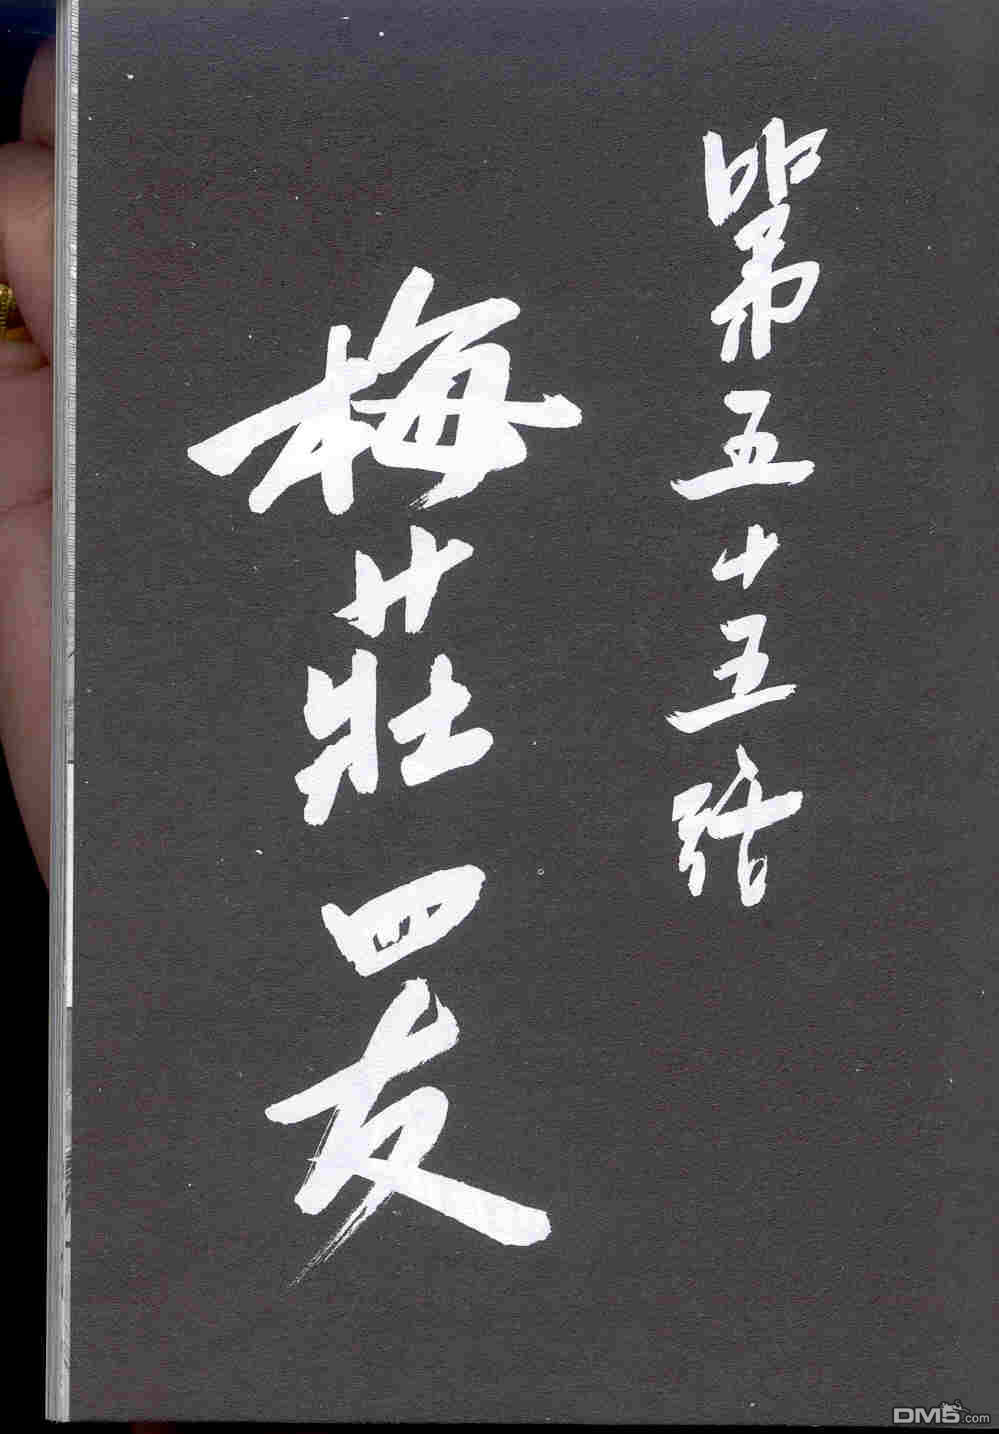 第五十五話
梅莊四友
DM5.com